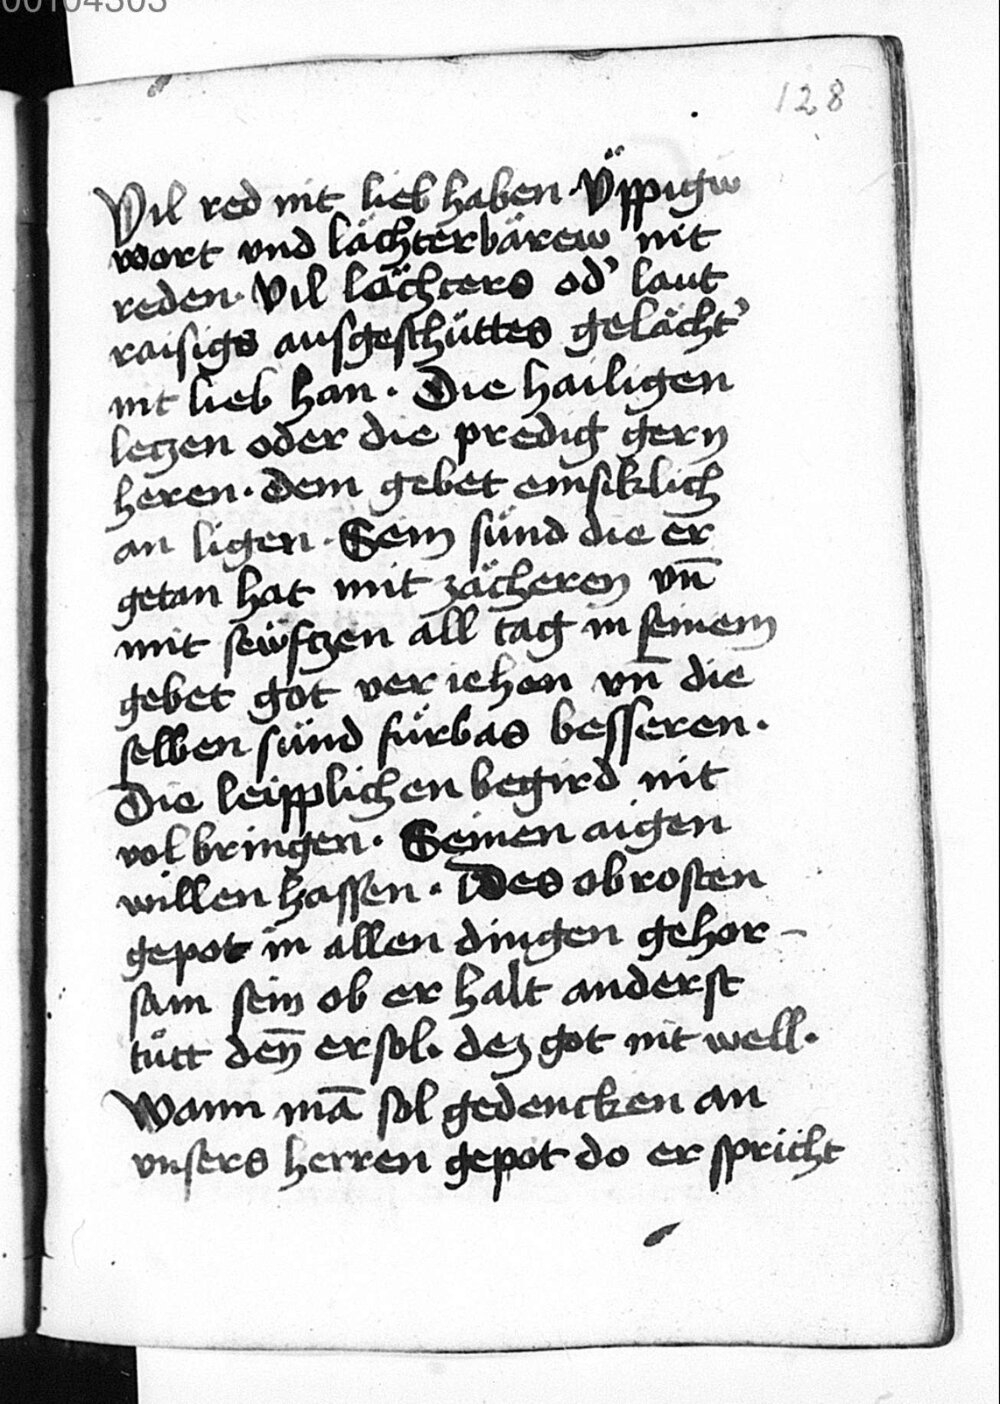 00104303
128
Vil red nit lieb haben · Vppigew
wort vnd lächterbärew nit
reden · Vil lächters od' laut
raisigs ausgeschüttes gelächt'
nit lieb han · Die hailigen
leczen oder die predig gern
heren · dem gebet emsiklich
an ligen · Sein sünd die er
getan hat mit zächeren vn̄
mit sewfczen all tag in seinem
gebet got ver iehen vn̄ die
selben sünd fürbas besseren ·
Die leipplichen begird nit
vol bringen · Seinen aigen
willen hassen · Des obrosten
gepot in allen dingen gehor –
sam sein ob er halt anderst
tütt den̄ er sol · dez got nit well ·
Wann mā sol gedencken an
vnsers herren gepot do er spricht